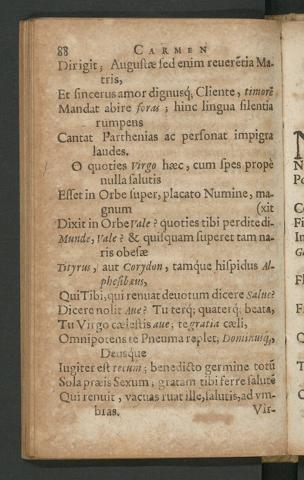 88 CARMEN
Dirigit; Augustæ sed enim reverētia Ma-
tris,
Et sincerus amor dignusq; Cliente, timorē
Mandat abire foras; hinc lingua silentia
rumpens
Cantat Parthenias ac personat impigra
laudes.
O quoties Virgo hæc, cum spes propè
nulla salutis
Esset in Orbe super, placato Numine, ma-
gnum (xit
Dixit in Orbe Vale? quoties tibi perdite di-
Munde, Vale? & quisquam superet tam na-
ris obesæ
Tityrus, aut Corydon, tamque hispidus Al-
phesibæus,
Qui Tibi, qui renuat devotum dicere Salve?
Dicere nolit Ave? Tu terq; quaterq; beata,
Tu Virgo cælestis ave; te gratia cæli,
Omnipotens te Pneuma replet, Dominusq,
Deusque
Iugiter est tecum; benedicto germine totū
Sola præis Sexum; gratam tibi ferre salutē
Qui renuit, vacuas ruat ille, salutis, ad vm-
bras. Vir-